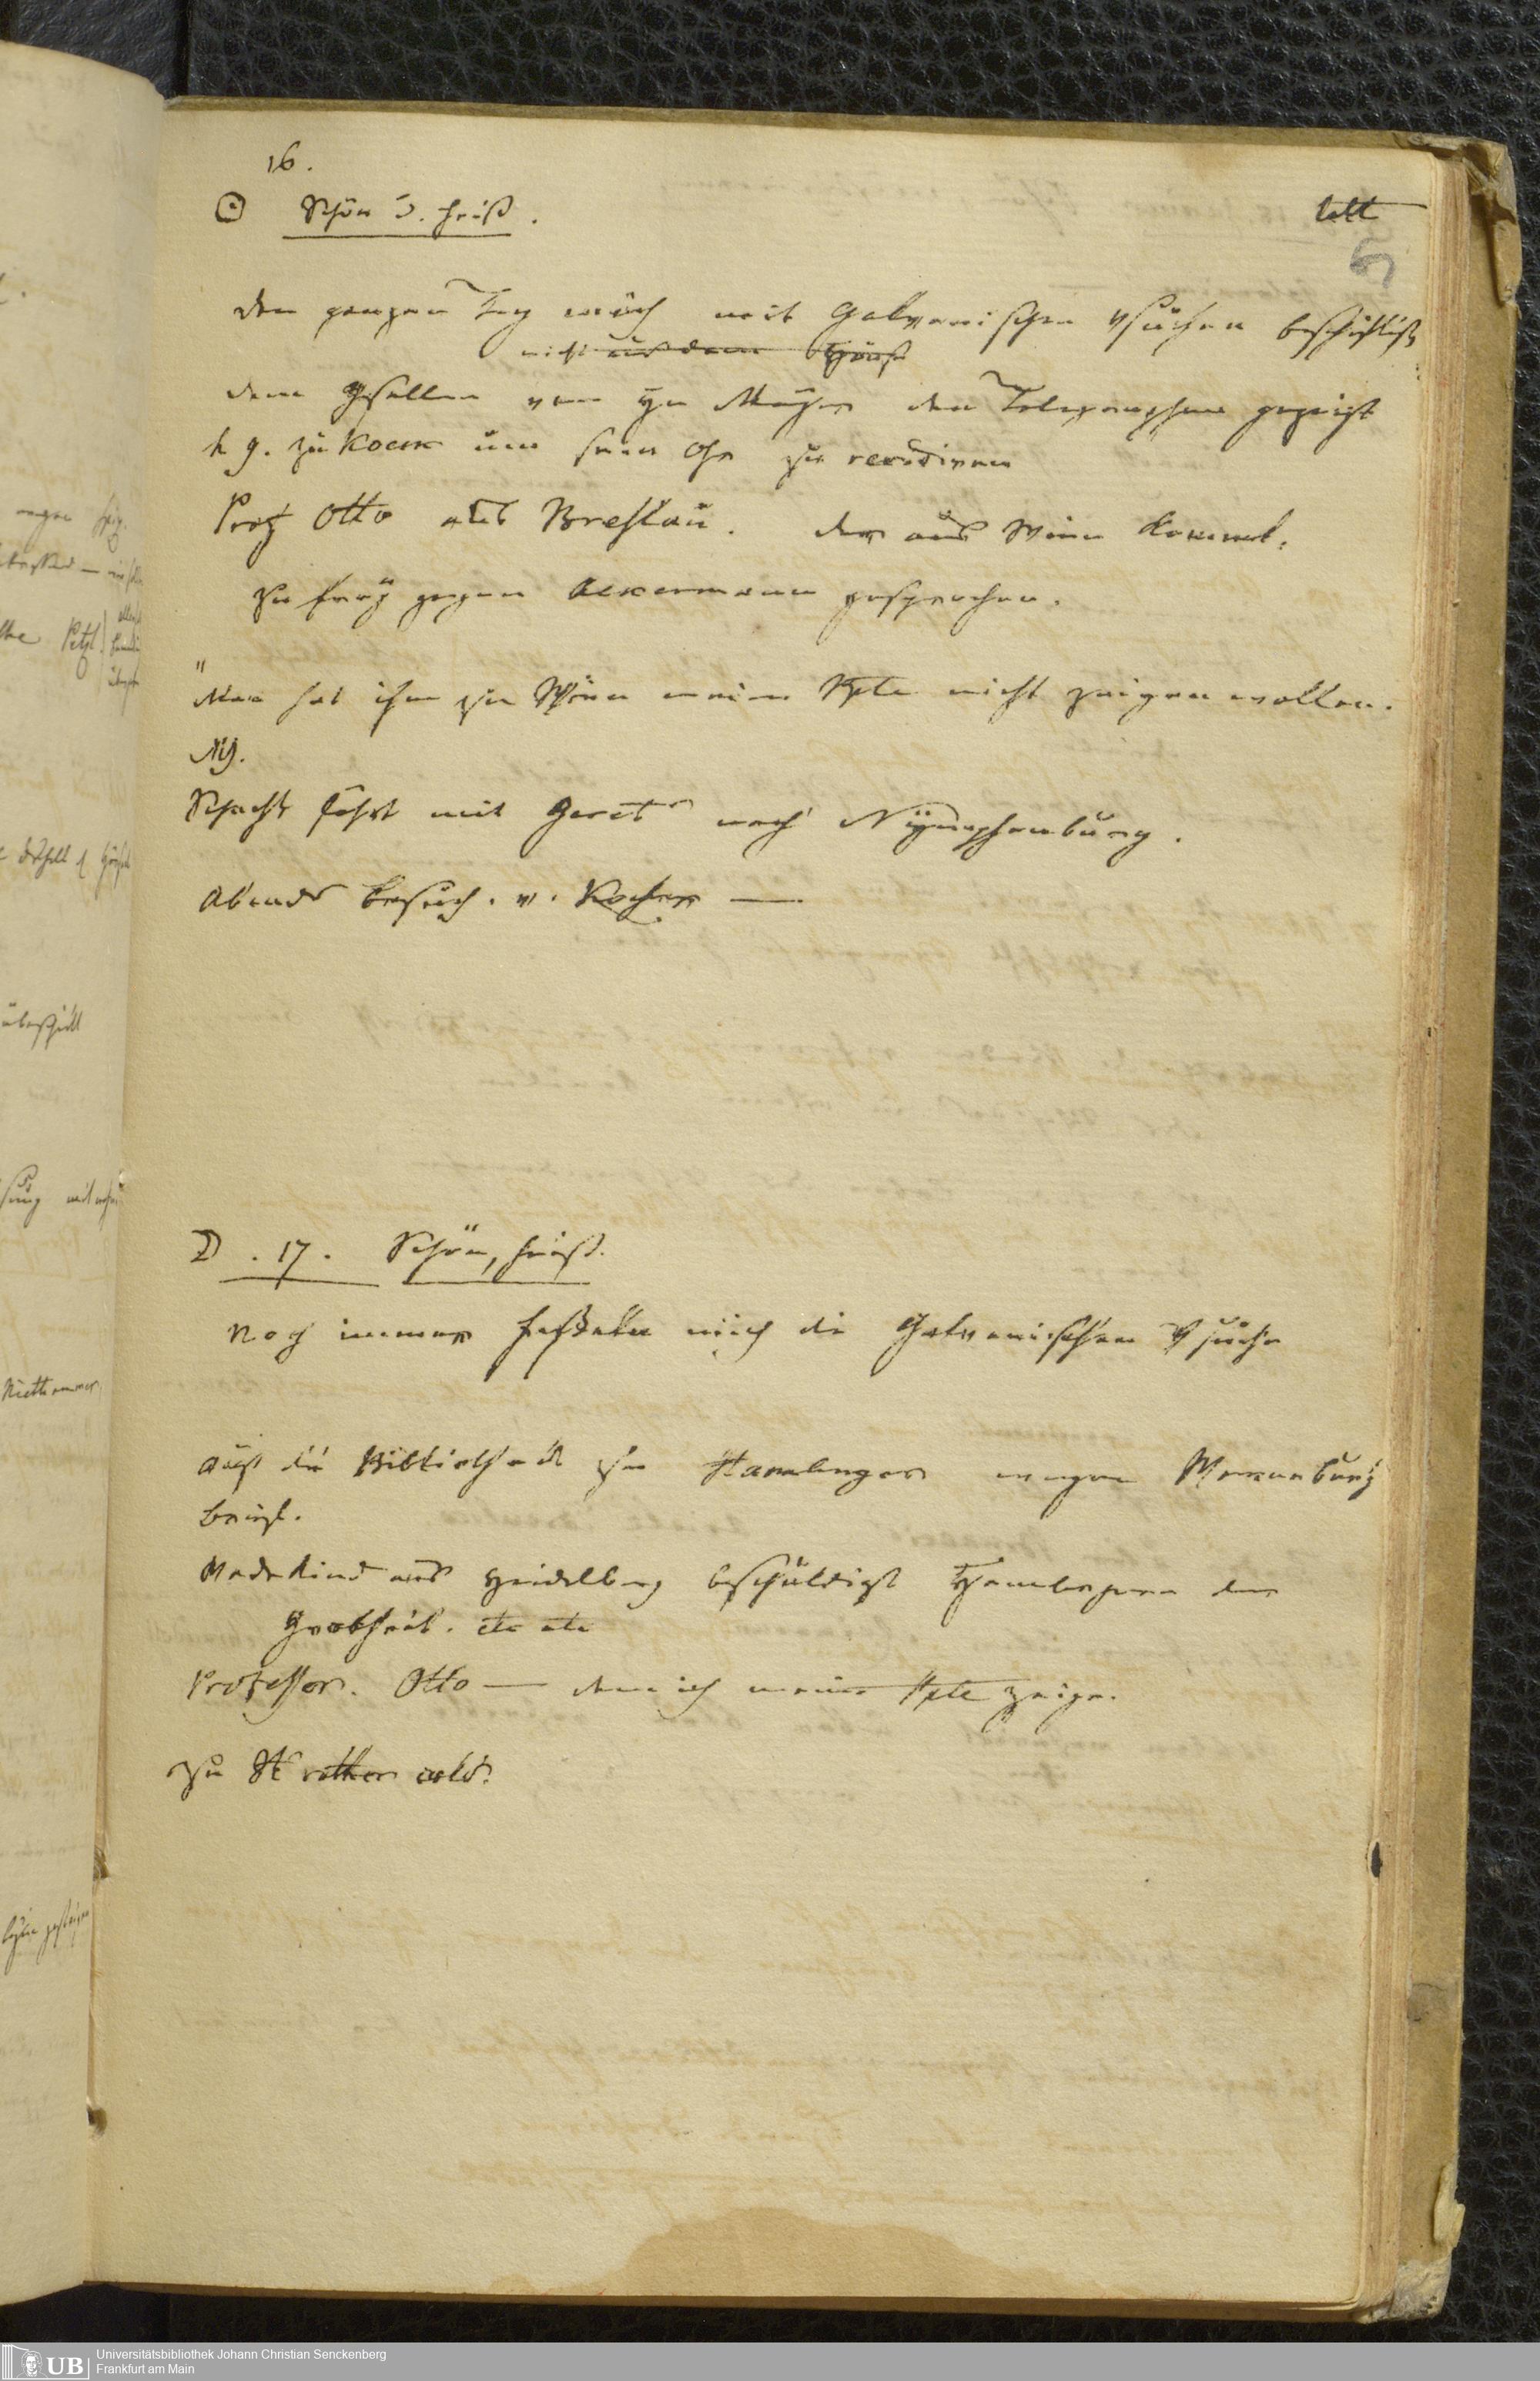 16.
☉ Schön u. heiß. lett
67
den ganzen Tag mich mit Galvanischen Vsuchen beschäftigt
nicht aus dem Hause
dem Gesellen von Hn Mayer den Telegraphen gezeigt
h g. zu Koeck um sein Ohr zu revidiren
Prof Otto aus Breslau. der aus Wien kommt.
zu frey gegen Ackermann gesprochen.
"Man hat ihm zu Wien meine Kpte nicht zeigen wollen.
NB.
Schacht fährt mit Geret nach Nymphenburg.
Abends besuch. v. Kocher —
☽ . 17. Schön, heiß.
Noch immer fesseln mich die Galvanischen Vsuche
Auf die Bibliotheck zu Hamberger wegen
bringt.
Wedekind aus Heidelberg beschuldigt Hambergern der
Grobheit. etc etc
Professor. Otto — dem ich meine Kpte zeige.
zu
Universitätsbibliothek Johann Christian Senckenberg
Frankfurt am Main
UB